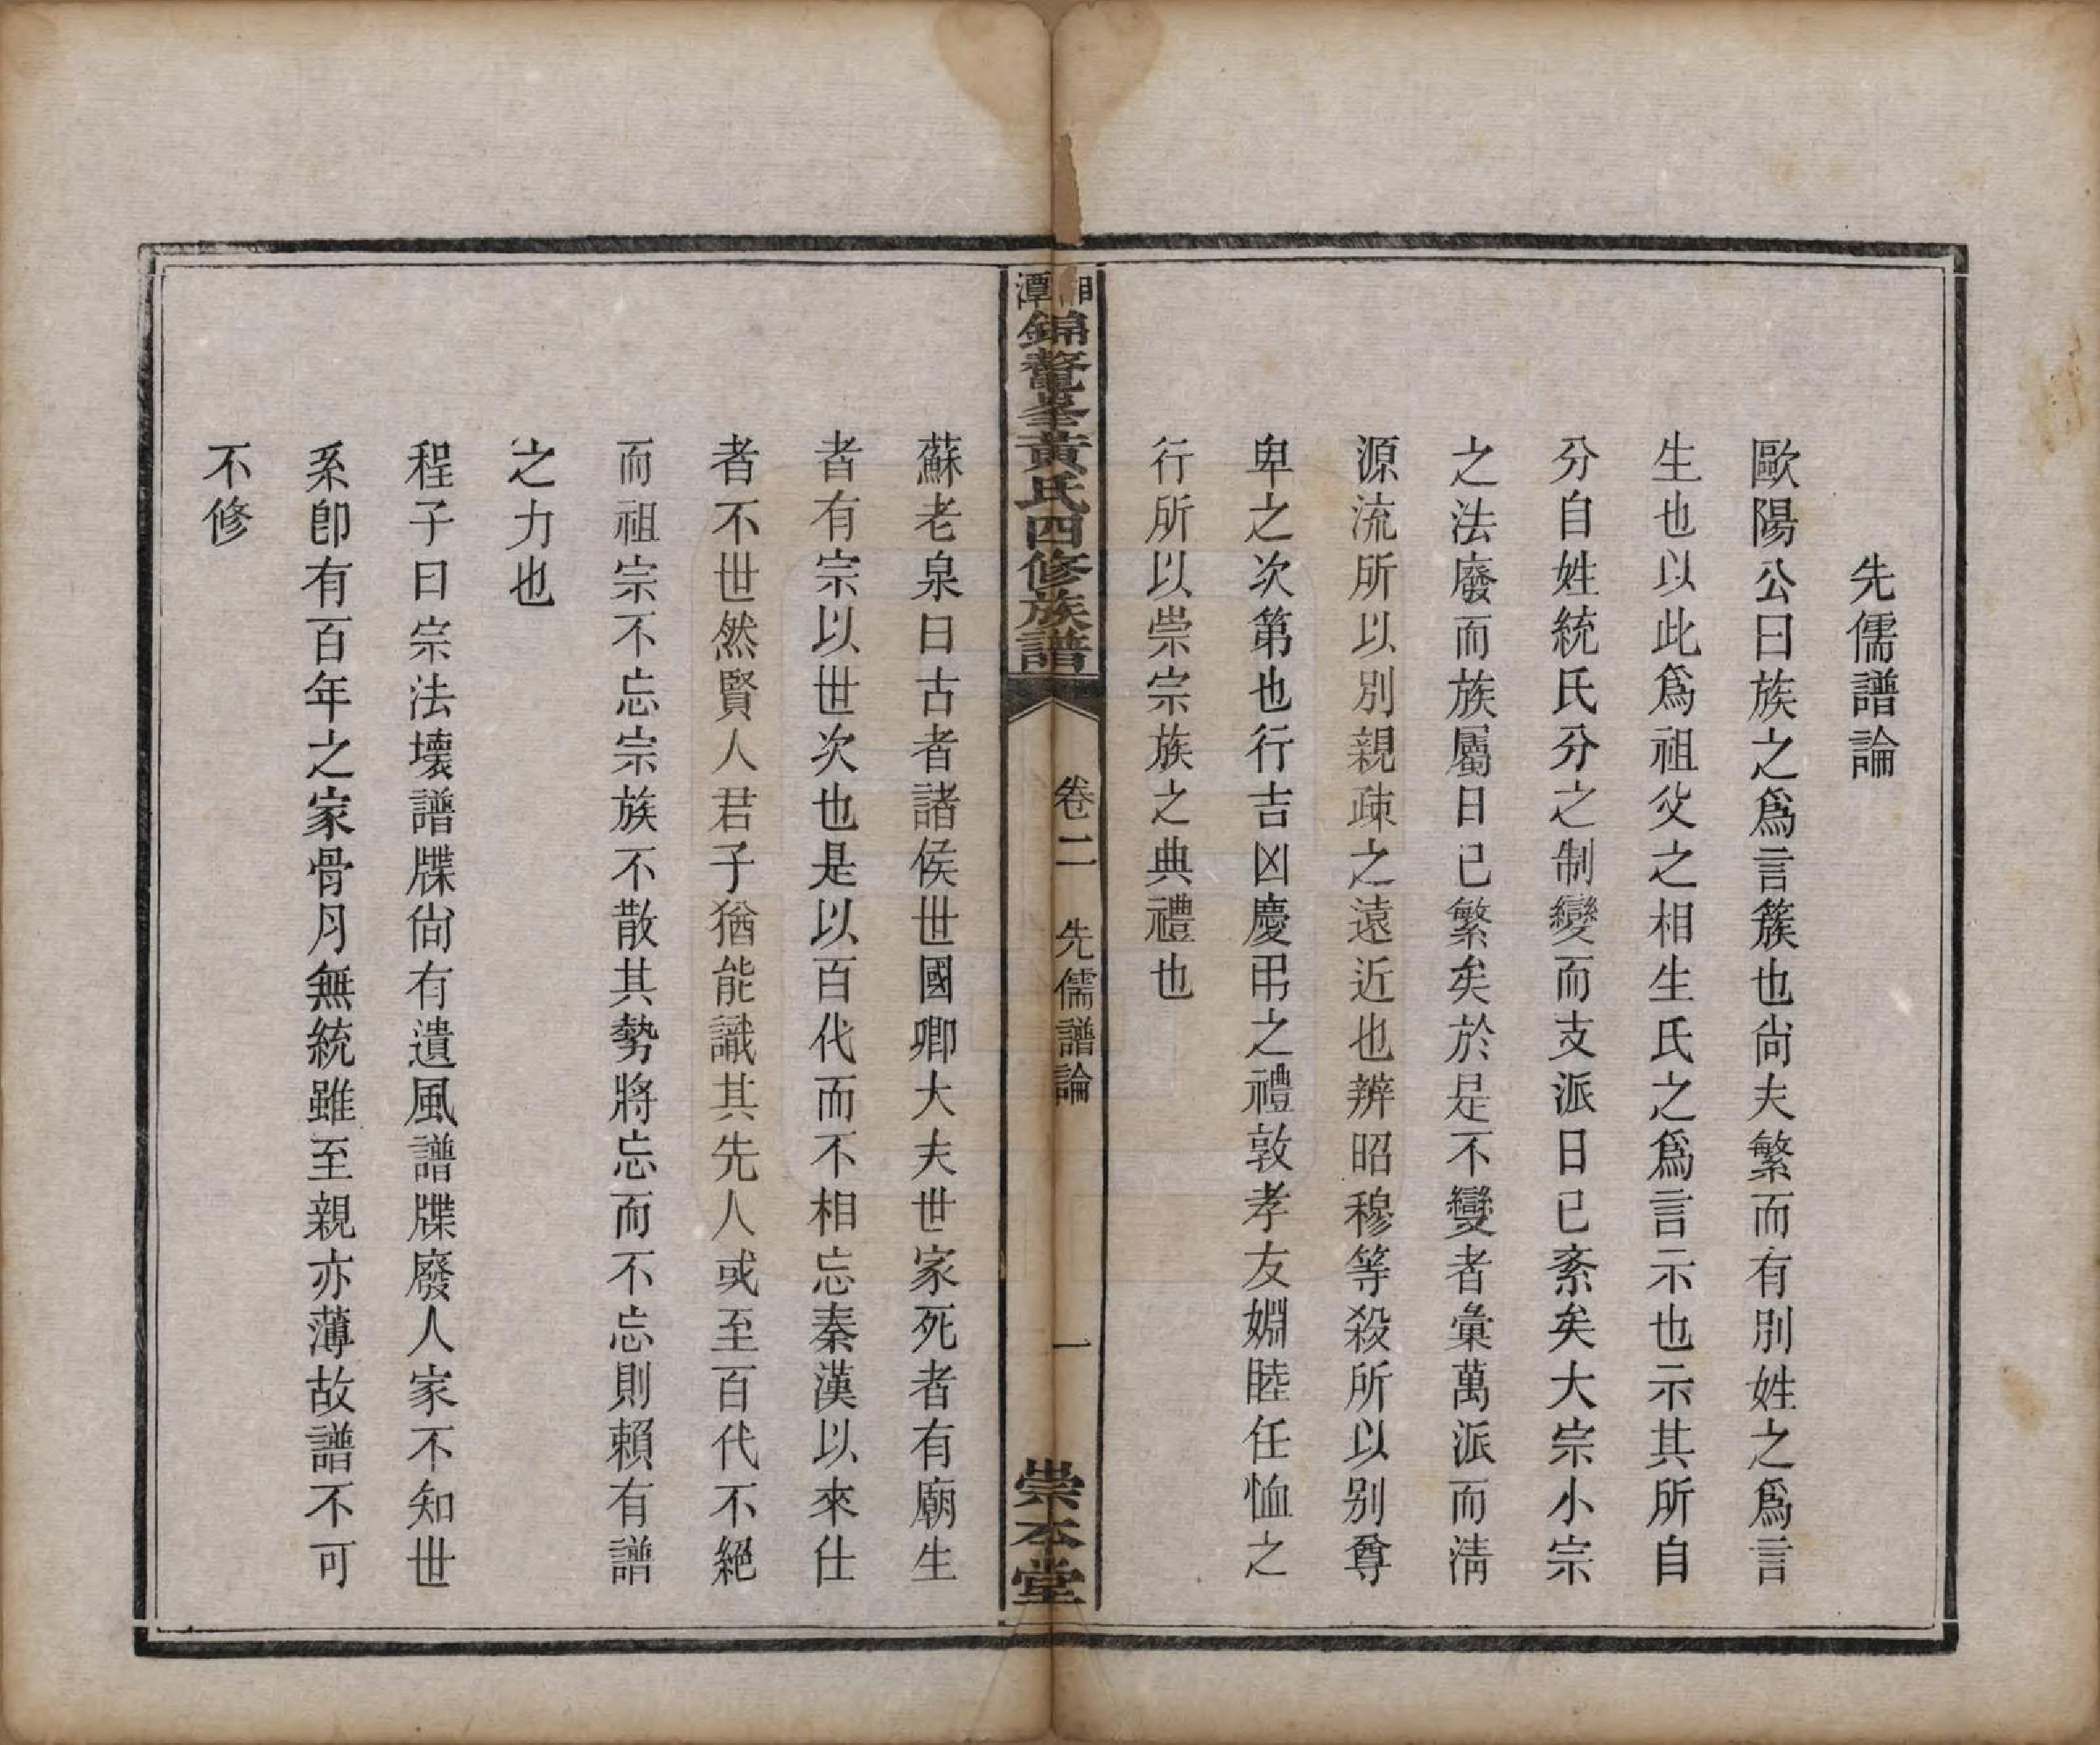 先儒譜論
歐陽公曰族之爲言簇也尙夫繁而有別姓之爲言
生也以此爲祖父之相生氏之爲言示也示其所自
分自姓統氏分之制變而支派日已紊矣大宗小宗
之法廢而族屬日已繁矣於是不變者彙萬派而淸
源流所以別親疎之遠近也辨昭穆等殺所以别尊
卑之次第也行吉凶慶弔之禮敦孝友婣睦任恤之
行所以崇宗族之典禮也
湘潭錦鰲峯黃氏四修族譜
卷二 先儒譜論
一
崇本堂
蘇老泉曰古者諸侯世國卿大夫世家死者有廟生
者有宗以世次也是以百代而不相忘秦漢以來仕
者不世然賢人君子猶能識其先人或至百代不絕
而祖宗不忘宗族不散其勢將忘而不忘則賴有譜
之力也
程子曰宗法壞譜牒尙有遺風譜牒廢人家不知世
系卽有百年之家骨月無統雖至親亦薄故譜不可
不修